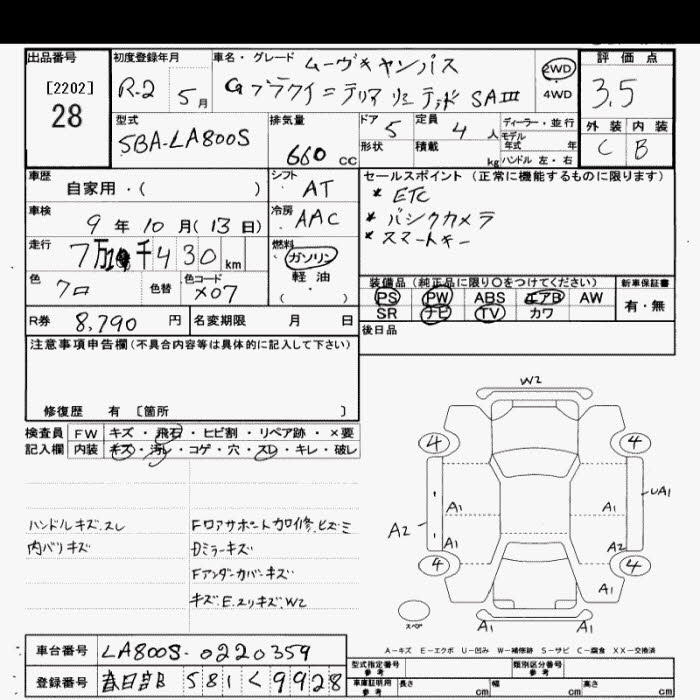 出品番号
[2202]
28
初度登録年月
R-2 5 月
車名・グレード
ムーヴキャンバス
2WD
4WD
評価点
3.5
外装 内装
C B
型式
5BA-LA800S
排気量
660 cc
ドア 5
定員 4 人
ディーラー・並行
モデル
年式 年
形状
積載 kg
ハンドル 左・右
車歴
自家用・( )
シフト AT
車検
9 年 10 月(13 日)
冷房 AAC
走行
430 km
燃料
ガソリン
軽油
( )
色
クロ
色替
色コード
X07
R券 8,790 円
名変期限 月 日
セールスポイント (正常に機能するものに限ります)
* ETC
* バックカメラ
* スマートキー
装備品 (純正品に限り〇をつけてください)
新車保証書
PS PW ABS エアB AW
SR ナビ TV カワ
有・無
後日品
注意事項申告欄(不具合内容等は具体的に記入して下さい)
修復歴 有 〔箇所 〕
検査員 FW キズ・飛石・ヒビ割・リペア跡・×要
記入欄 内装 キズ・汚レ・コゲ・穴・スレ・キレ・破レ
ハンドルキズ、スレ
内バリキズ
Dミラーキズ
Fアンダーカバーキズ
W2
4 4
A1 A1 UA1
A2
A1 A2
4 4
A1
スペア
A1 A1
A-キズ E-エクボ U-凹み W-補修跡 S-サビ C-腐食 XX-交換済
車台番号 LA800S-0220359
登録番号 春日部 581 く 9928
型式指定番号
参考
類別区分番号
参考
車庫証明用
参考
長さ cm
幅 cm
高さ cm